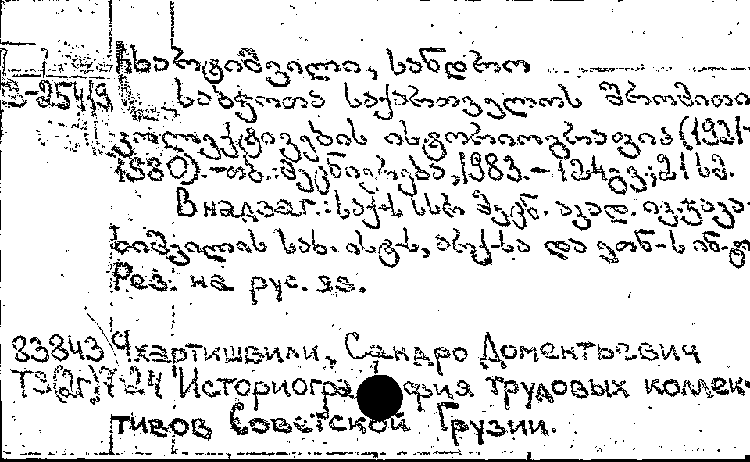 ჩხარტიშვილი, სანდრო
საბჭოთა საქართველოს შრომითი
კოლექტივების ისტორიოგრაფია (1921-
1980).-თბ.:მეცნიერება,1983.-124გვ;21სმ.
В надзаг.: საქ-ს სსრ მეცნ. აკად. ივ.ჯავა-
ხიშვილის სახ. ისტ-ს, არქ-სა და ეთნ-ს ინ-ტი
Рез. на рус. яз.
83843 Чхартишвили, Сандро Доментьевич
Т3(2Г)7-24 Историография трудовых коллек-
тивов Советской Грузии.